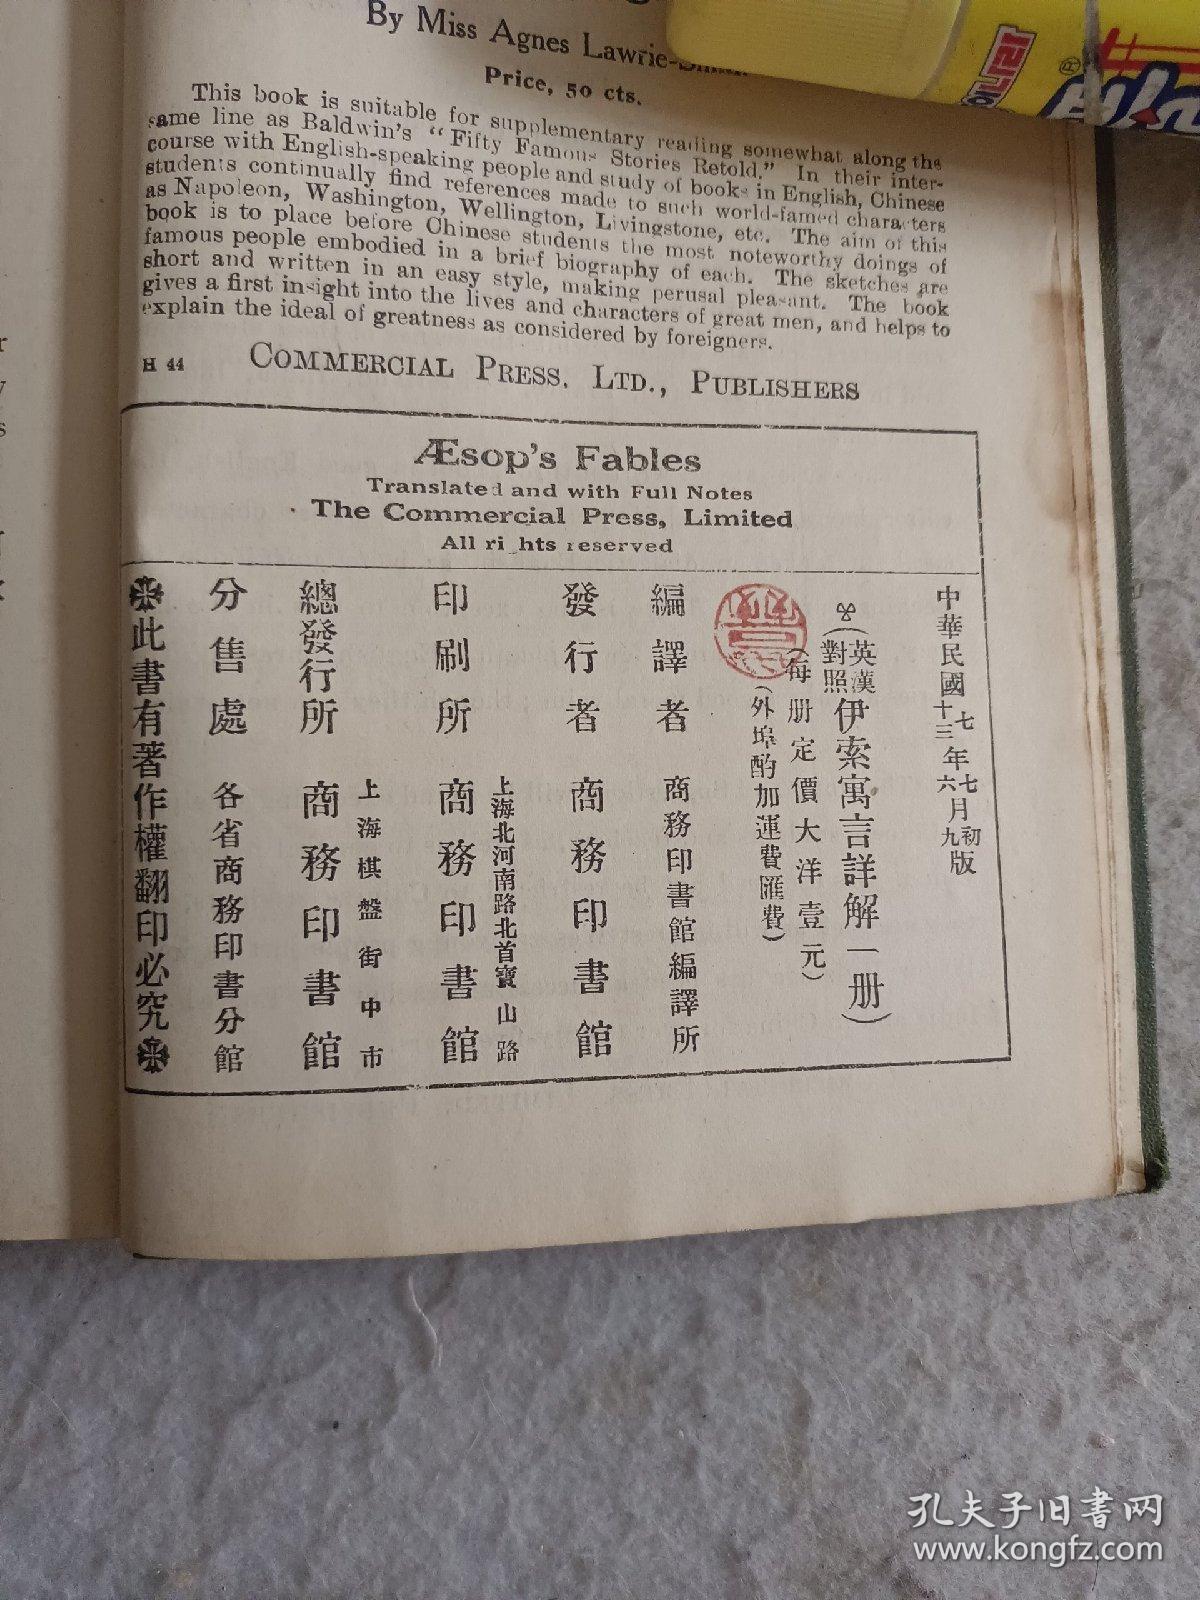 By Miss Agnes Lawrie-
Price, 50 cts.
This book is suitable for supplementary reading somewhat along the
same line as Baldwin's "Fifty Famous Stories Retold." In their inter-
course with English-speaking people and study of books in English, Chinese
students continually find references made to such world-famed characters
as Napoleon, Washington, Wellington, Livingstone, etc. The aim of this
book is to place before Chinese students the most noteworthy doings of
famous people embodied in a brief biography of each. The sketches are
short and written in an easy style, making perusal pleasant. The book
gives a first insight into the lives and characters of great men, and helps to
explain the ideal of greatness as considered by foreigners.
H 44
COMMERCIAL PRESS, LTD., PUBLISHERS
Æsop's Fables
Translated and with Full Notes
The Commercial Press, Limited
All rights reserved
中華民國七年七月初版
十三 六 九
(英漢對照伊索寓言詳解一册)
(每册定價大洋壹元)
(外埠酌加運費匯費)
編譯者 商務印書館編譯所
發行者 商務印書館
上海北河南路北首寶山路
印刷所 商務印書館
上海棋盤街中市
總發行所 商務印書館
分售處 各省商務印書分館
此書有著作權翻印必究
孔夫子旧书网
www.kongfz.com